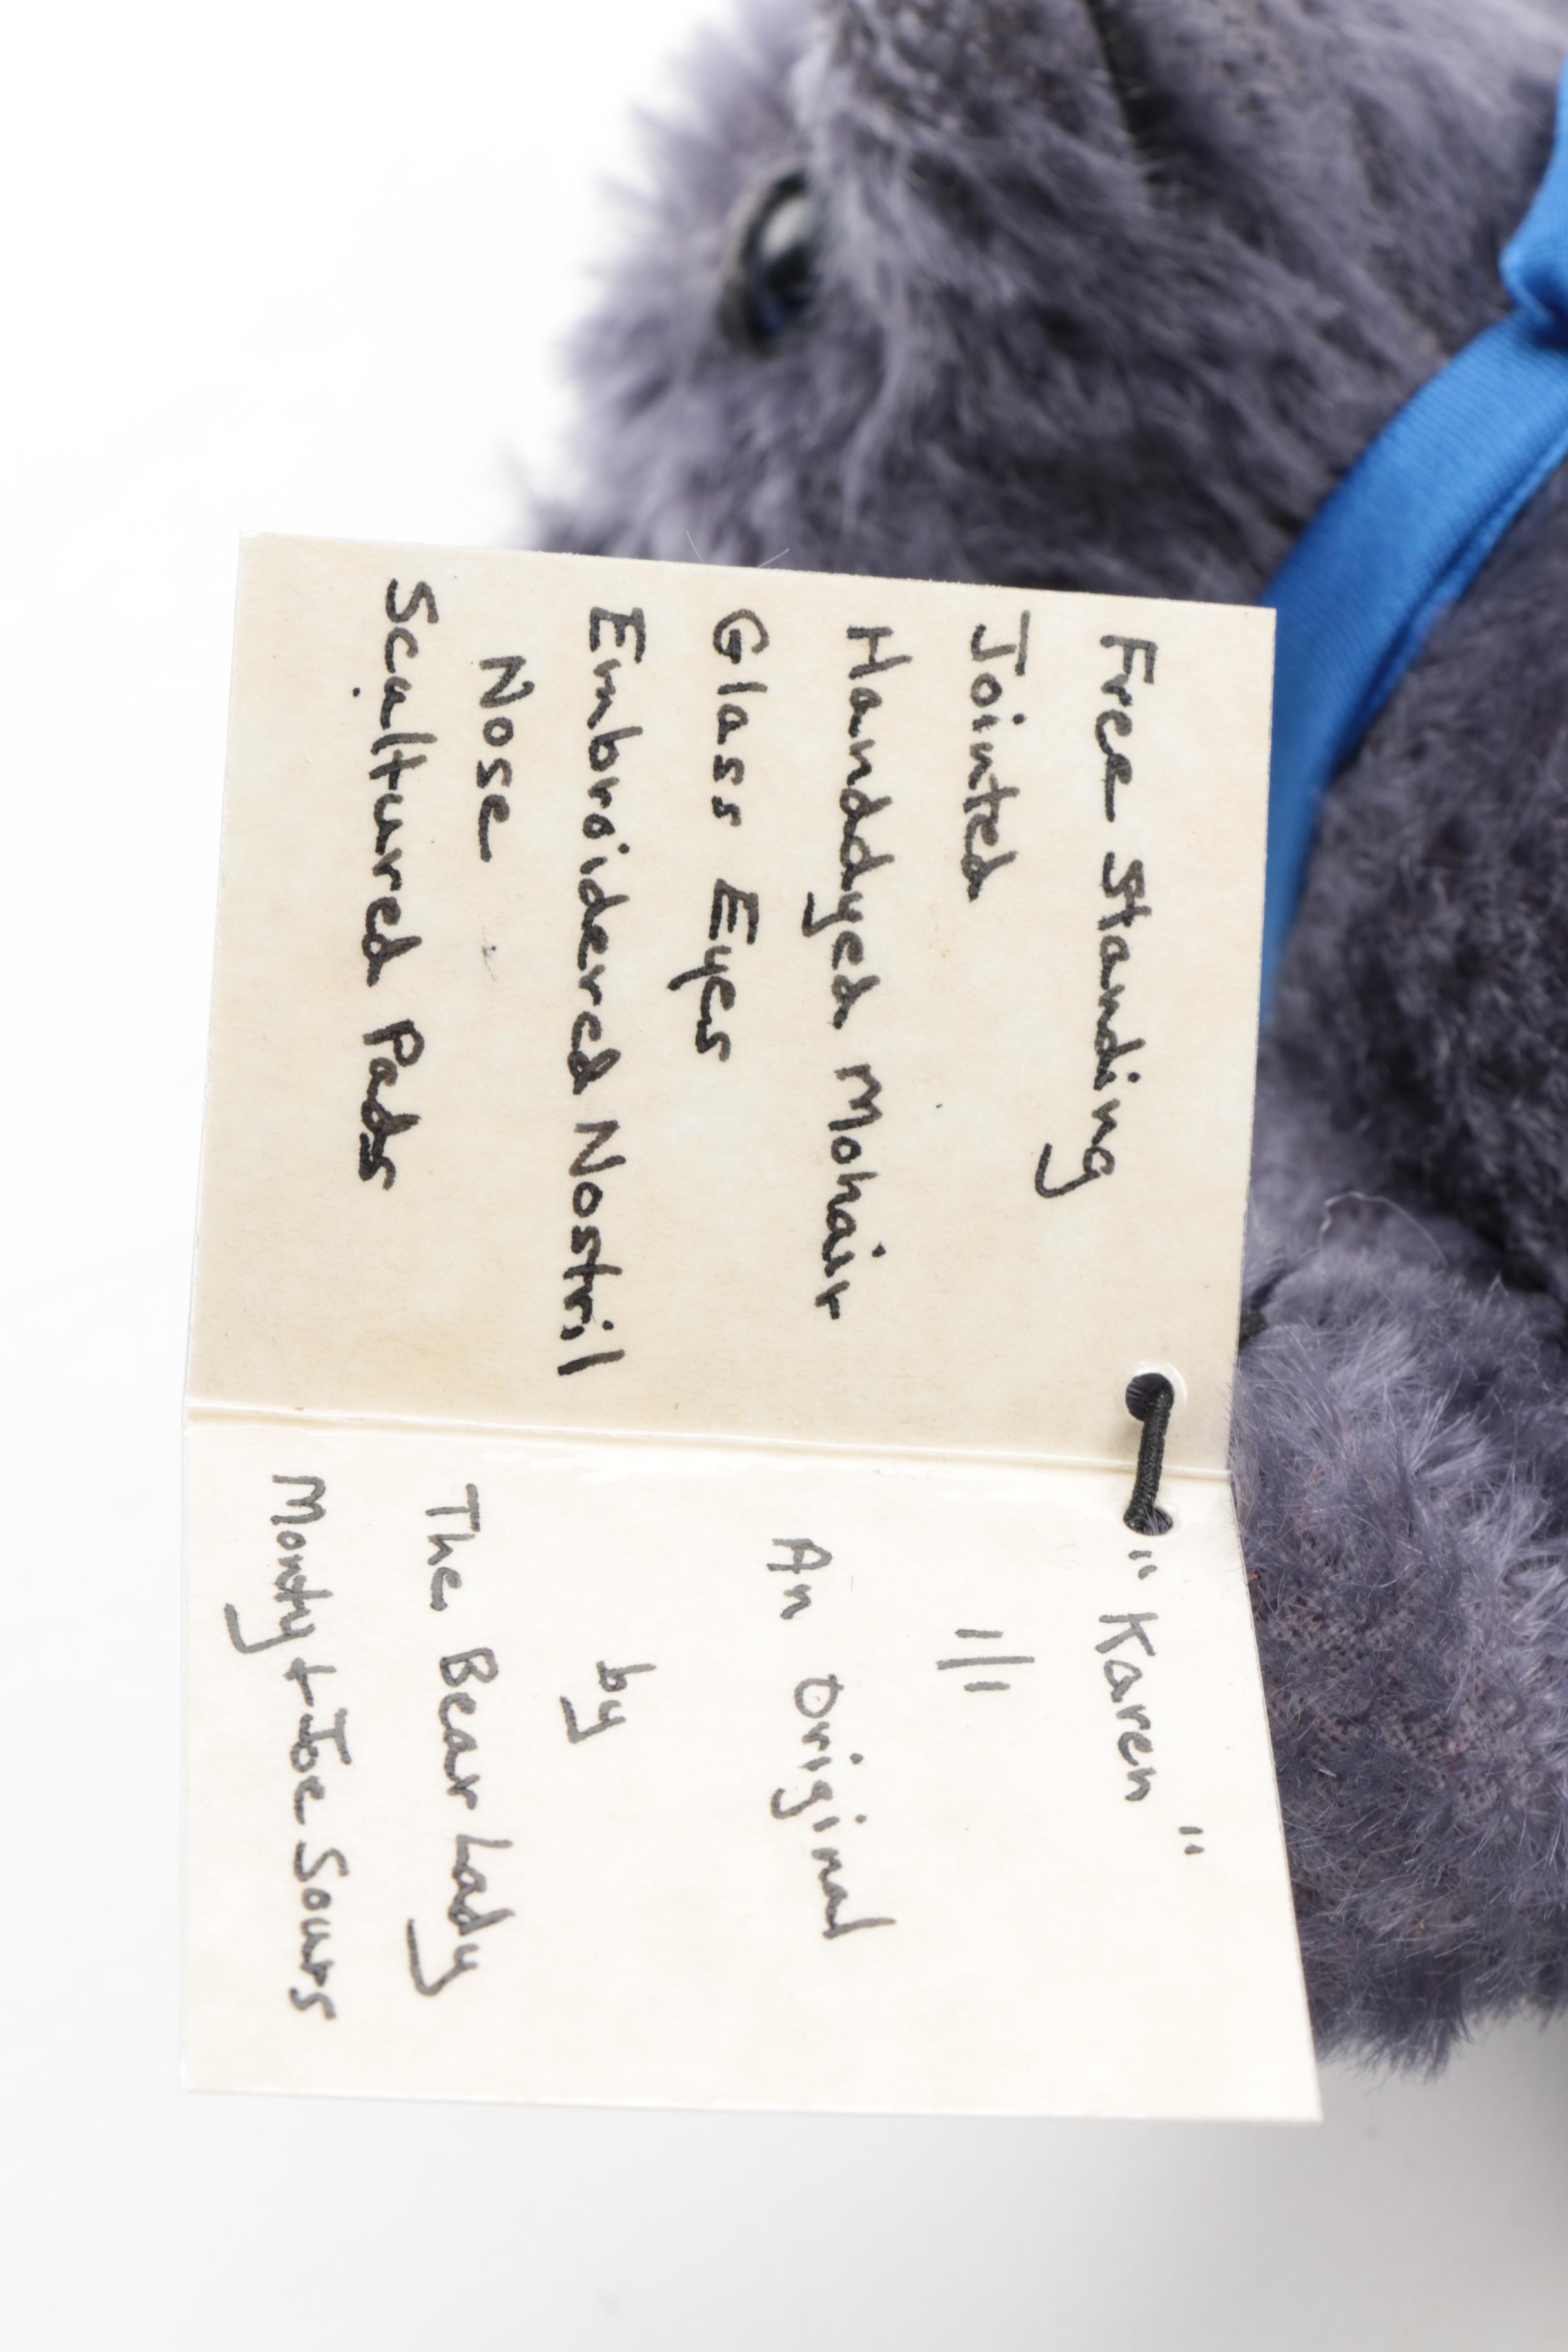 Free Standing
Jointed
Handdyed Mohair
Glass Eyes
Embroidered Nostril
Nose
Scultured Pads
"Karen"
1/1
An Original
by
The Bear Lady
Monty + Joe Sours